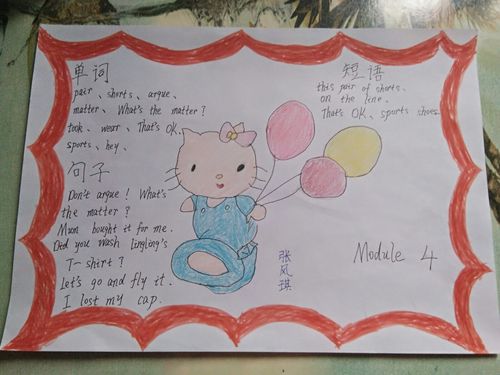 单词
pair、shorts、argue、
matter、What's the matter?
took、wear、That's OK、
sports、hey、
句子
Don't argue! What's
the matter?
Mum bought it for me.
Did you wash lingling's
T-shirt?
Let's go and fly it.
I lost my cap.
短语
this pair of shorts、
on the line、
That's OK、sports shoes
张凤琪
Module 4